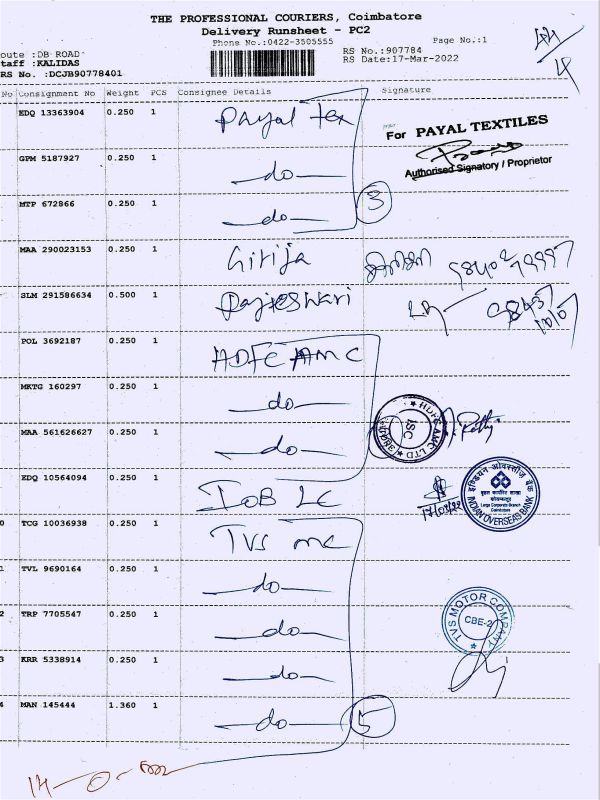 THE PROFESSIONAL COURIERS, Coimbatore
Delivery Runsheet - PC2
Phone No.:0422-3505555
Page No.:1
oute :DB ROAD
taff :KALIDAS
RS No. :DCJB90778401
RS No.:907784
RS Date:17-Mar-2022
No Consignment No Weight PCS Consignee Details Signature
EDQ 13363904 0.250 1 Payal tex
For PAYAL TEXTILES
Authorised Signatory / Proprietor
GPM 5187927 0.250 1 do
MTP 672866 0.250 1 do
3
MAA 290023153 0.250 1 Girija
SLM 291586634 0.500 1 Rajeshwari
POL 3692187 0.250 1 HDFC AMC
MKTG 160297 0.250 1 do
MAA 561626627 0.250 1 do
HDFC AMC LTD
CSI
EDQ 10564094 0.250 1 IOB LC
17/03/22
इण्डियन ओवरसीज़ बैंक
Large Corporate Branch
Coimbatore
INDIAN OVERSEAS BANK
0 TCG 10036938 0.250 1 TVS mc
1 TVL 9690164 0.250 1 do
2 TRP 7705547 0.250 1 do
TVS MOTOR COMPANY
CBE-2
3 KRR 5338914 0.250 1 do
4 MAN 145444 1.360 1 do
5
14-0-